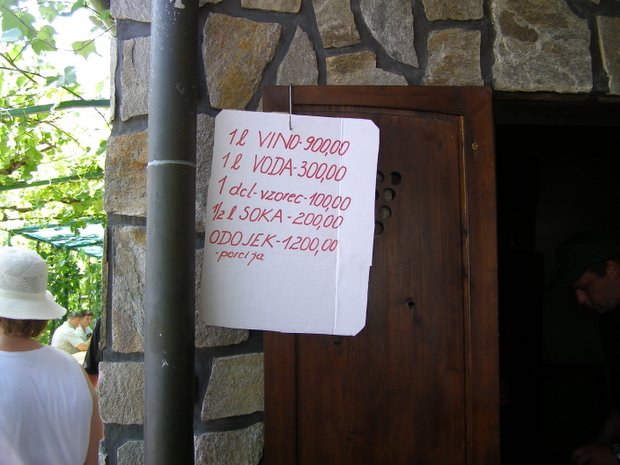 1 l VINO-900,00
1 l VODA-300,00
1 dcl-vzorec-100,00
1/2 l SOKA-200,00
ODOJEK-1.200,00
-porcija